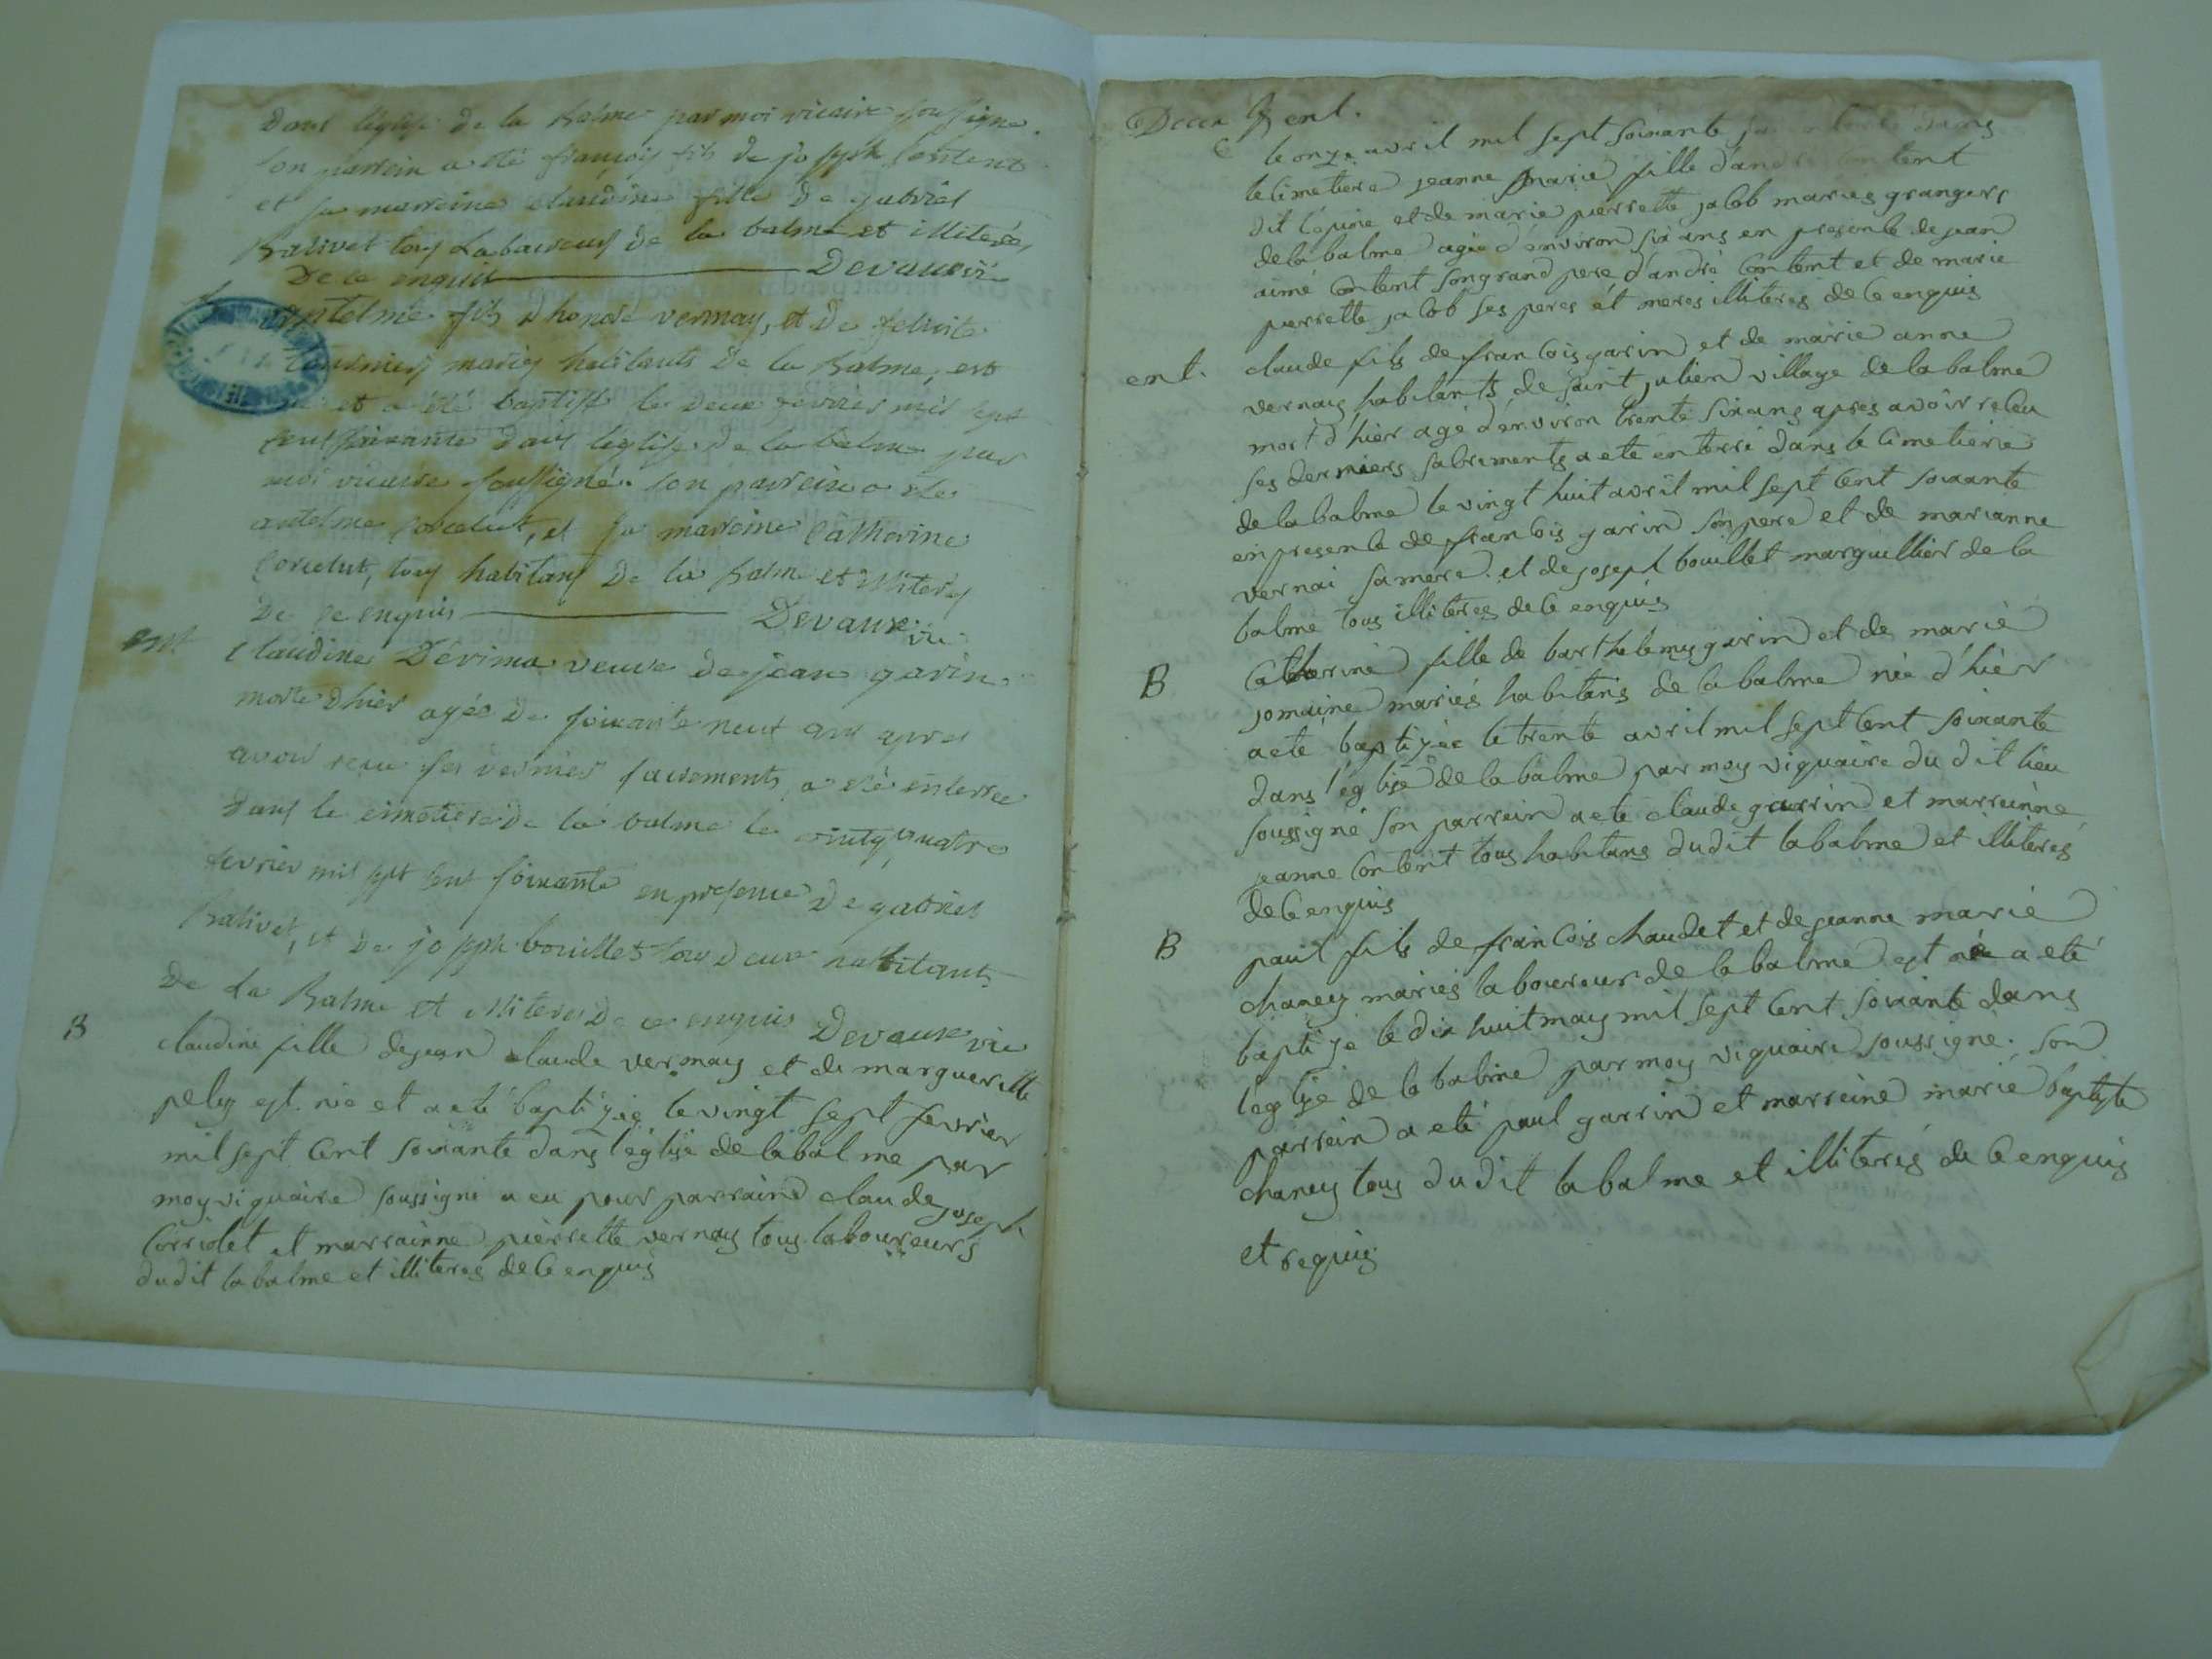 dans l'église de la Balme par moi vicaire soussigné.
son parrein a été françois fils de joseph Content
et sa marreine claudine fille de gabriel
Ralivet tous Laboureurs de la balme et illiterés
De ce enquis Devaux vic
antelme fils d'honoré vernay, et de felicité
mariés habitants de la Balme, est
né et a été baptisé le deux fevrier mil sept
cent soixante dans l'église de la balme par
moi vicaire soussigné. son parrein a été
antelme corcelut, et sa marreine Catherine
Corcelut, tous habitans de la Balme et illiterés
De ce enquis Devaux vic
ent
Claudine veuve de jean garin
morte d'hier agée de soixante neuf ans apres
avoir recu ses derniers sacrements, a été enterrée
dans le cimetiere de la balme le vingtquatre
fevrier mil sept cent soixante en presence de gabriel
Ralivet, et de joseph bouillet tous deux habitants
de la Balme et illiterés de ce enquis Devaux vic
B
claudine fille de jean claude vernay et de margueritte
peley est née et a eté baptizée le vingt sept fevrier
mil sept cent soixante dans l'eglise de la balme par
moy viguaire soussigné a eu pour parraind claude joseph
Corriolet et marrainne pierrette vernay tous laboureurs
dudit la balme et illiteres de ce enquis
ent.
le onze avril mil sept soixante dans
le cimetiere jeanne marie fille d'andré Content
dit l'épine et de marie pierrette jacob mariés grangers
de la balme agée d'environ six ans en presence de jean
aimé Content son grand pere d'andré Content et de marie
pierrette jacob ses peres et meres illiteres de ce enquis
ent.
claude fils de francois garin et de marie anne
vernay habitants de saint julien village de la balme
mort d'hier agé d'environ trente six ans apres avoir receu
ses derniers sacrements a eté enterré dans le cimetiere
de la balme le vingt huit avril mil sept cent soixante
en presence de francois garin son pere et de marianne
vernai sa mere. et de joseph bouillet marguillier de la
balme tous illiteres de ce enquis
B
Catherine fille de barthelemy garin et de marie
jomaine mariés habitans de la balme née d'hier
a eté baptizée le trente avril mil sept cent soixante
dans l'eglise de la balme par moy viguaire du dit lieu
soussigné son parrein a eté claude garrin et marreinne
jeanne Content tous habitans dudit la balme et illiteres
de ce enquis
B
paul fils de francois chaudet et de jeanne marie
chaney mariés laboureur de la balme est né a eté
baptizé le dix huit may mil sept cent soixante dans
l'eglise de la balme par moy viguaire soussigné. son
parrein a eté paul garrin et marreine marie baptiste
chaney tous dudit la balme et illiterés de ce enquis
et requis